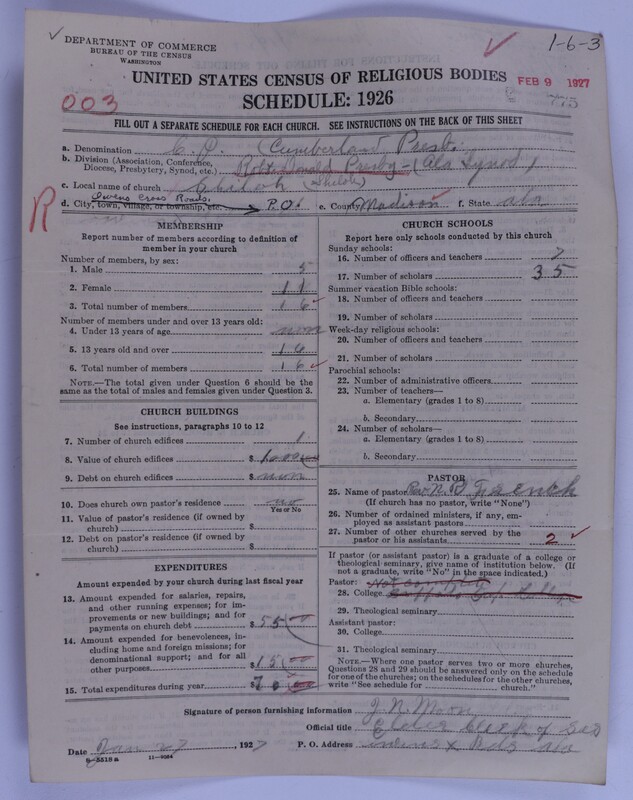 DEPARTMENT OF COMMERCE
BUREAU OF THE CENSUS
WASHINGTON
1-6-3
UNITED STATES CENSUS OF RELIGIOUS BODIES
FEB 9 1927
SCHEDULE: 1926
003
FILL OUT A SEPARATE SCHEDULE FOR EACH CHURCH. SEE INSTRUCTIONS ON THE BACK OF THIS SHEET
a. Denomination C. P. (Cumberland Presb.
b. Division (Association, Conference, Diocese, Presbytery, Synod, etc.) Presby-(Ala Synod)
c. Local name of church (Shiloh)
d. City, town, village, or township, etc. Owens Cross Roads. P.O. e. County Madison f. State ala
R
MEMBERSHIP
Report number of members according to definition of
member in your church
Number of members, by sex:
1. Male 5
2. Female 11
3. Total number of members 16
Number of members under and over 13 years old:
4. Under 13 years of age none
5. 13 years old and over 16
6. Total number of members 16
NOTE.—The total given under Question 6 should be
same as the total of males and females given under Question 3.
CHURCH BUILDINGS
See instructions, paragraphs 10 to 12
7. Number of church edifices 1
8. Value of church edifices $ 1000
9. Debt on church edifices $ non
10. Does church own pastor's residence no
Yes or No
11. Value of pastor's residence (if owned by
church) $
12. Debt on pastor's residence (if owned by
church) $
EXPENDITURES
Amount expended by your church during last fiscal year
13. Amount expended for salaries, repairs,
and other running expenses; for im-
provements or new buildings; and for
payments on church debt $ 55
14. Amount expended for benevolences, in-
cluding home and foreign missions; for
denominational support; and for all
other purposes $ 15
15. Total expenditures during year $ 70
CHURCH SCHOOLS
Report here only schools conducted by this church
Sunday schools:
16. Number of officers and teachers 7
17. Number of scholars 35
Summer vacation Bible schools:
18. Number of officers and teachers
19. Number of scholars
Week-day religious schools:
20. Number of officers and teachers
21. Number of scholars
Parochial schools:
22. Number of administrative officers
23. Number of teachers—
a. Elementary (grades 1 to 8)
b. Secondary
24. Number of scholars—
a. Elementary (grades 1 to 8)
b. Secondary
PASTOR
25. Name of pastor Rev.
(If church has no pastor, write "None")
26. Number of ordained ministers, if any, em-
ployed as assistant pastors
27. Number of other churches served by the
pastor or his assistants 2
If pastor (or assistant pastor) is a graduate of a college or
theological seminary, give name of institution below. (If
not a graduate, write "No" in the space indicated.)
Pastor:
28. College College
29. Theological seminary
Assistant pastor:
30. College
31. Theological seminary
NOTE.—Where one pastor serves two or more churches,
Questions 28 and 29 should be answered only on the schedule
for one of the churches; on the schedules for the other churches,
write "See schedule for church."
Signature of person furnishing information J. N. Moon
Official title Elder clerk of
Date Jan 27, 1927 P. O. Address owens X Rds ala
8-5518a 11-9084